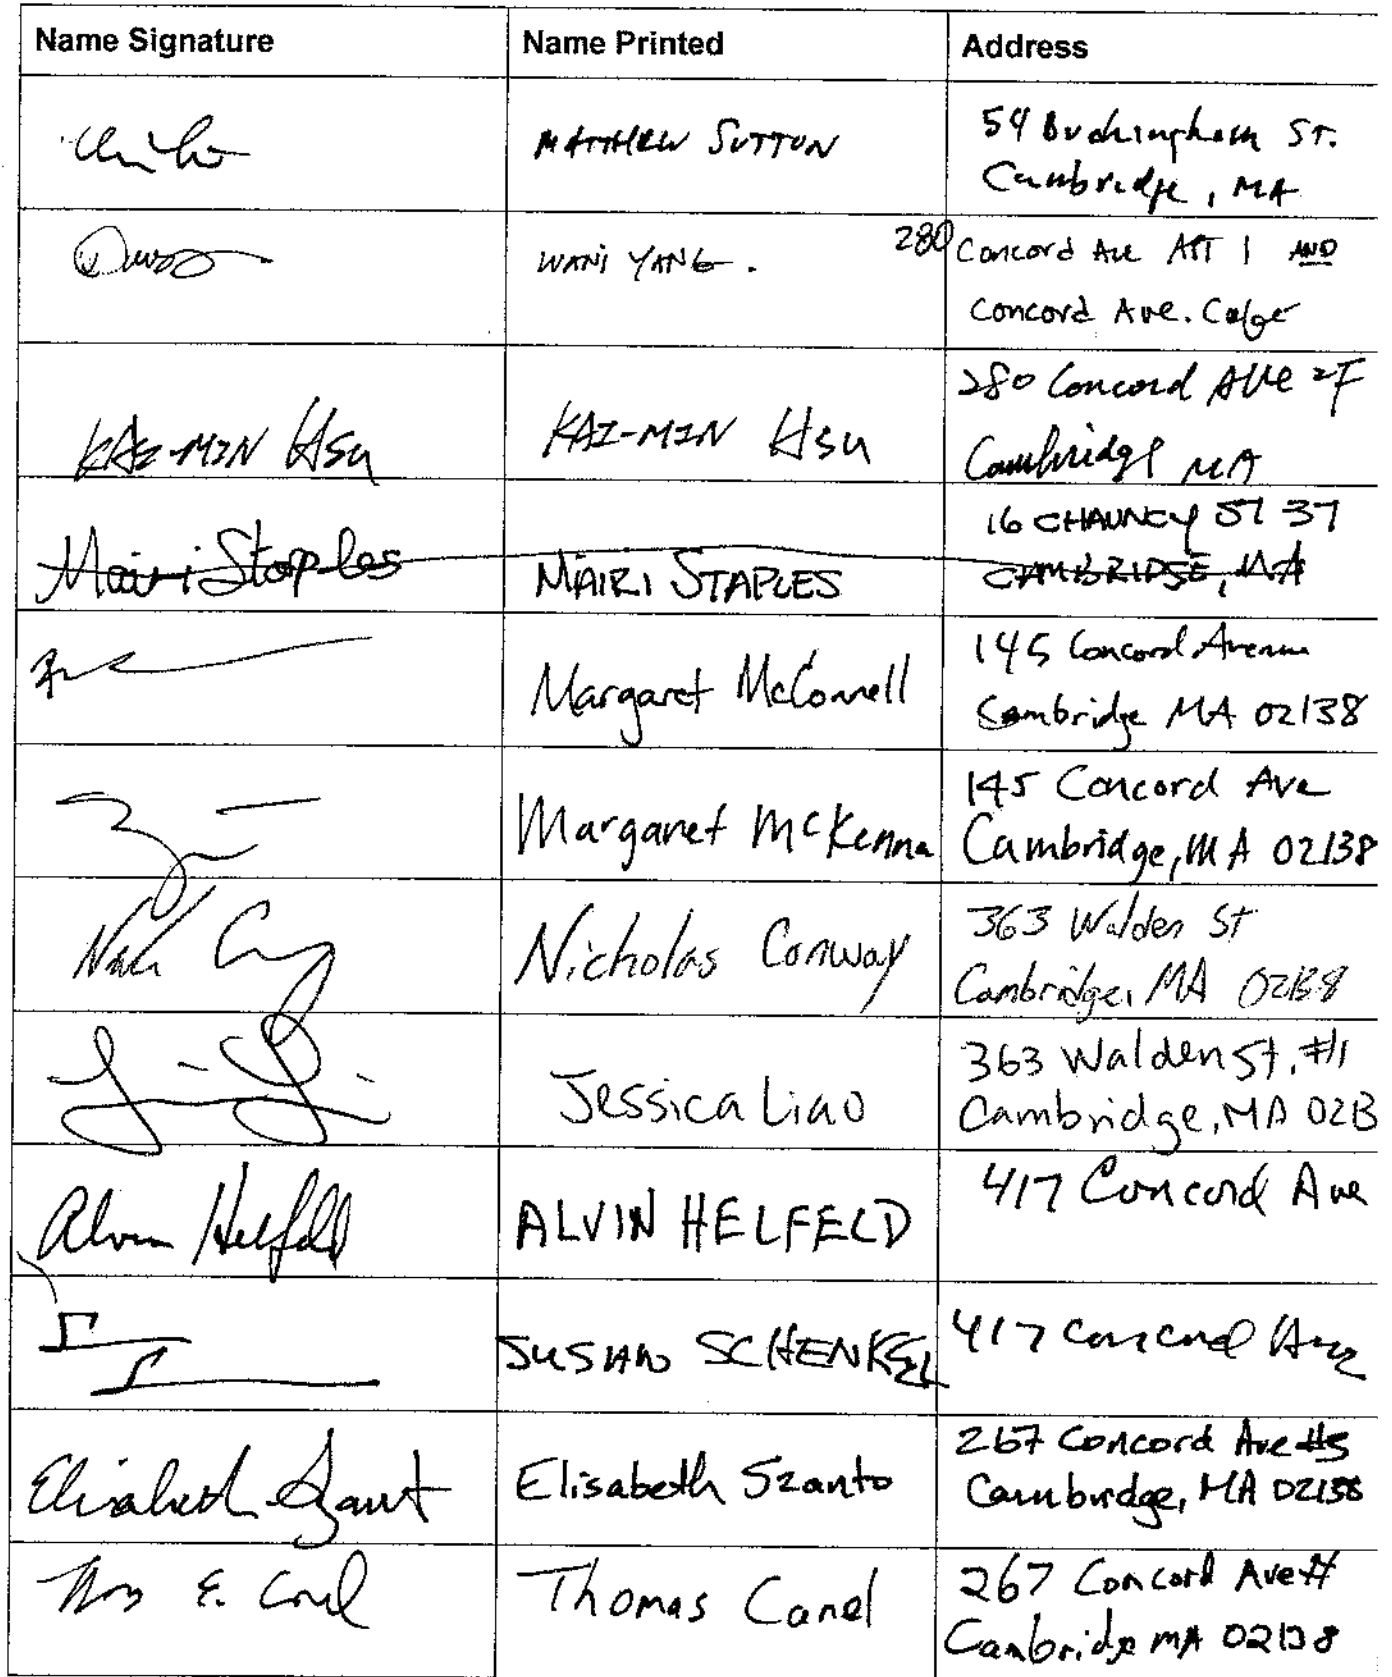 Name Signature Name Printed Address
MATTHEW SUTTON 54 Buckingham ST.
Cambridge, MA
WANI YANG. 280 Concord Ave APT 1 AND
Concord Ave.
KAI-MIN Hsu KAI-MIN Hsu 280 Concord AVE 2F
Cambridge MA
Mairi Staples MAIRI STAPLES 16 CHAUNCY ST 37
CAMBRIDGE, MA
Margaret McConnell 145 Concord Avenue
Cambridge MA 02138
Margaret McKenna 145 Concord Ave
Cambridge, MA 02138
Nicholas Conway 363 Walden St
Cambridge, MA 02138
Jessica Liao 363 Walden St, #1
Cambridge, MA 0213
Alvin Helfeld ALVIN HELFELD 417 Concord Ave
SUSAN SCHENKEL 417 Concord Ave
Elisabeth Szanto Elisabeth Szanto 267 Concord Ave #5
Cambridge, MA 02138
Thomas Canel 267 Concord Ave #
Cambridge MA 02138